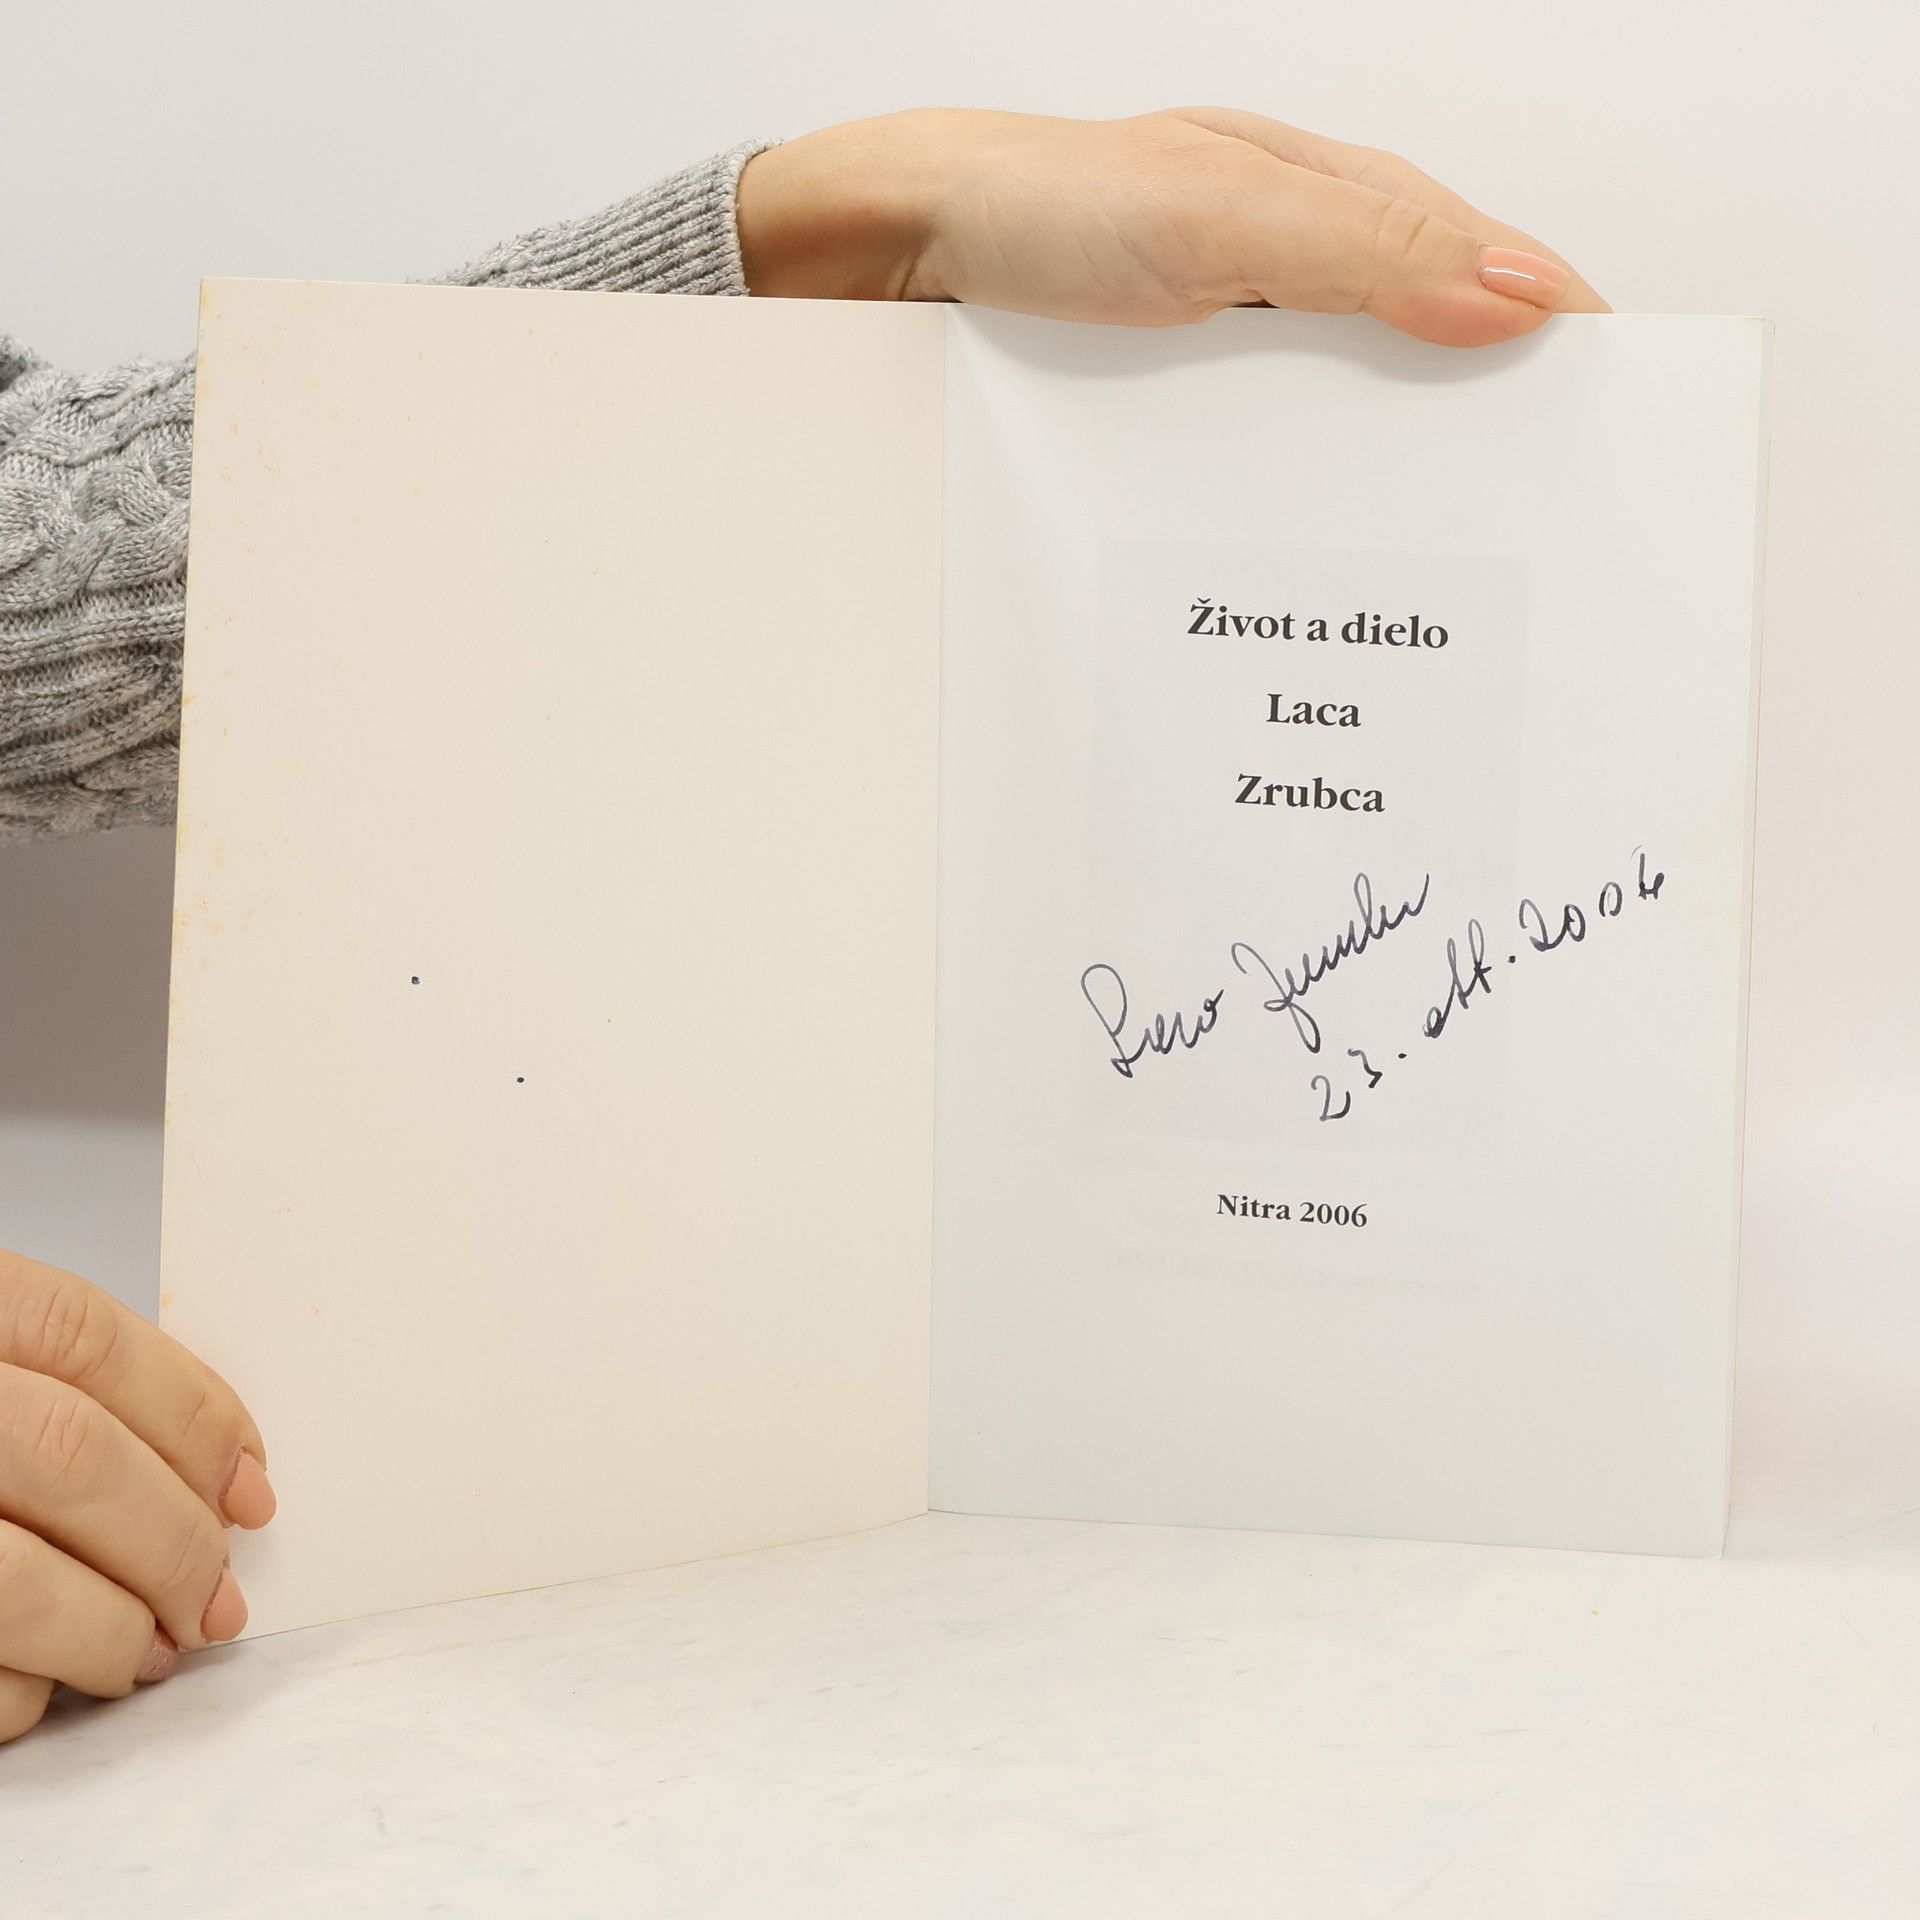 Život a dielo
Laca
Zrubca
Laco Zrubec
23. okt. 2006
Nitra 2006